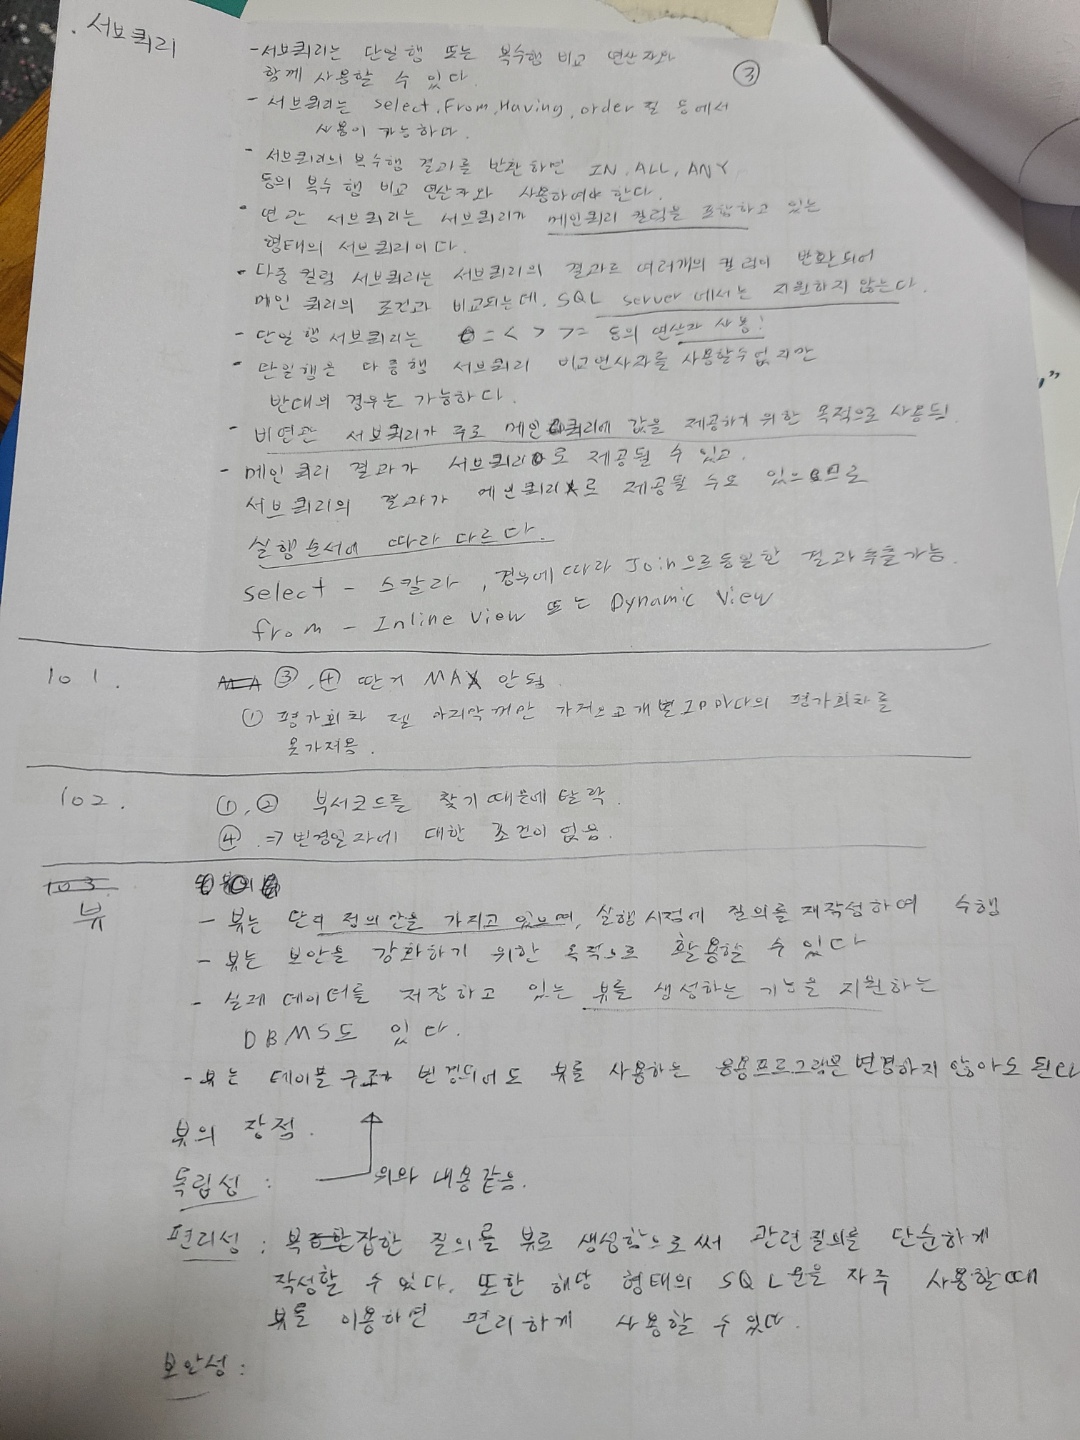 . 서브쿼리
③
- 서브쿼리는 단일행 또는 복수행 비교 연산자와
함께 사용할 수 있다.
- 서브쿼리는 select, From, Having, order 절 등에서
사용이 가능하다.
- 서브쿼리의 복수행 결과를 반환하면 IN, ALL, ANY
등의 복수 행 비교 연산자와 사용하여야 한다.
- 연관 서브쿼리는 서브쿼리가 메인쿼리 컬럼을 포함하고 있는
형태의 서브쿼리이다.
- 다중 컬럼 서브쿼리는 서브쿼리의 결과로 여러개의 컬럼이 반환되어
메인 쿼리의 조건과 비교되는데, SQL server에서는 지원하지 않는다.
- 단일행 서브쿼리는 = < > >= 등의 연산자 사용!
- 단일행은 다중행 서브쿼리 비교연사자를 사용할수없지만
반대의 경우는 가능하다.
- 비연관 서브쿼리가 주로 메인쿼리에 값을 제공하기 위한 목적으로 사용됨.
- 메인쿼리 결과가 서브쿼리로 제공될 수 있고,
서브쿼리의 결과가 메인쿼리로 제공될 수도 있으므로
실행순서에 따라 다르다.
select - 스칼라, 경우에 따라 Join으로 동일한 결과 추출가능.
from - Inline View 또는 Dynamic View
101.
③, ④ 딴거 MAX 안됨.
① 평가회차 젤 마지막꺼만 가져오고 개별 마다의 평가회차를
못가져옴.
102.
①, ② 부서코드를 찾기 때문에 탈락.
④ => 변경일자에 대한 조건이 없음.
103
뷰
- 뷰는 단지 정의만을 가지고 있으며, 실행시점에 질의를 재작성하여 수행
- 뷰는 보안을 강화하기 위한 목적으로 활용할 수 있다
- 실제 데이터를 저장하고 있는 뷰를 생성하는 기능을 지원하는
DBMS도 있다.
- 뷰는 테이블 구조가 변경되어도 뷰를 사용하는 응용프로그램은 변경하지 않아도 된다
뷰의 장점.
독립성 : 위와 내용같음.
편리성 : 복잡한 질의를 뷰로 생성함으로써 관련질의를 단순하게
작성할 수 있다. 또한 해당 형태의 SQL문을 자주 사용할때
뷰를 이용하면 편리하게 사용할 수 있다.
보안성 :